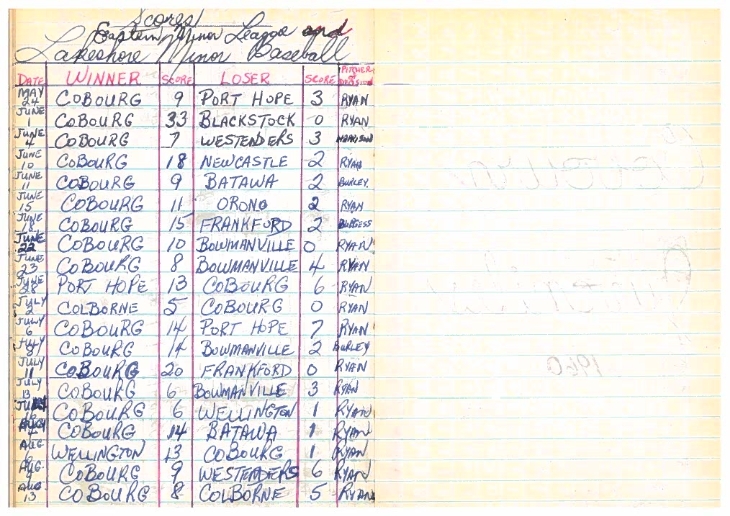 Scores
Eastern Minor League and
Lakeshore Minor Baseball
DATE WINNER SCORE LOSER SCORE PITCHER
MAY 24 COBOURG 9 PORT HOPE 3 RYAN
JUNE 1 COBOURG 33 BLACKSTOCK 0 RYAN
JUNE 4 COBOURG 7 WESTENDERS 3
JUNE 10 COBOURG 18 NEWCASTLE 2 RYAN
JUNE 11 COBOURG 9 BATAWA 2 BURLEY
JUNE 15 COBOURG 11 ORONO 2 RYAN
JUNE 18 COBOURG 15 FRANKFORD 2 BURGESS
JUNE 22 COBOURG 10 BOWMANVILLE 0 RYAN
JUNE 23 COBOURG 8 BOWMANVILLE 4 RYAN
JUNE 28 PORT HOPE 13 COBOURG 6 RYAN
JULY 2 COLBORNE 5 COBOURG 0 RYAN
JULY 6 COBOURG 14 PORT HOPE 7 RYAN
JULY COBOURG 14 BOWMANVILLE 2 BURLEY
JULY 11 COBOURG 20 FRANKFORD 0 RYAN
JULY 13 COBOURG 6 BOWMANVILLE 3 RYAN
16 COBOURG 6 WELLINGTON 1 RYAN
COBOURG 14 BATAWA 1 RYAN
AUG 6 WELLINGTON 13 COBOURG 1 RYAN
AUG. COBOURG 9 WESTENDERS 6 RYAN
AUG 13 COBOURG 8 COLBORNE 5 RYAN
1960